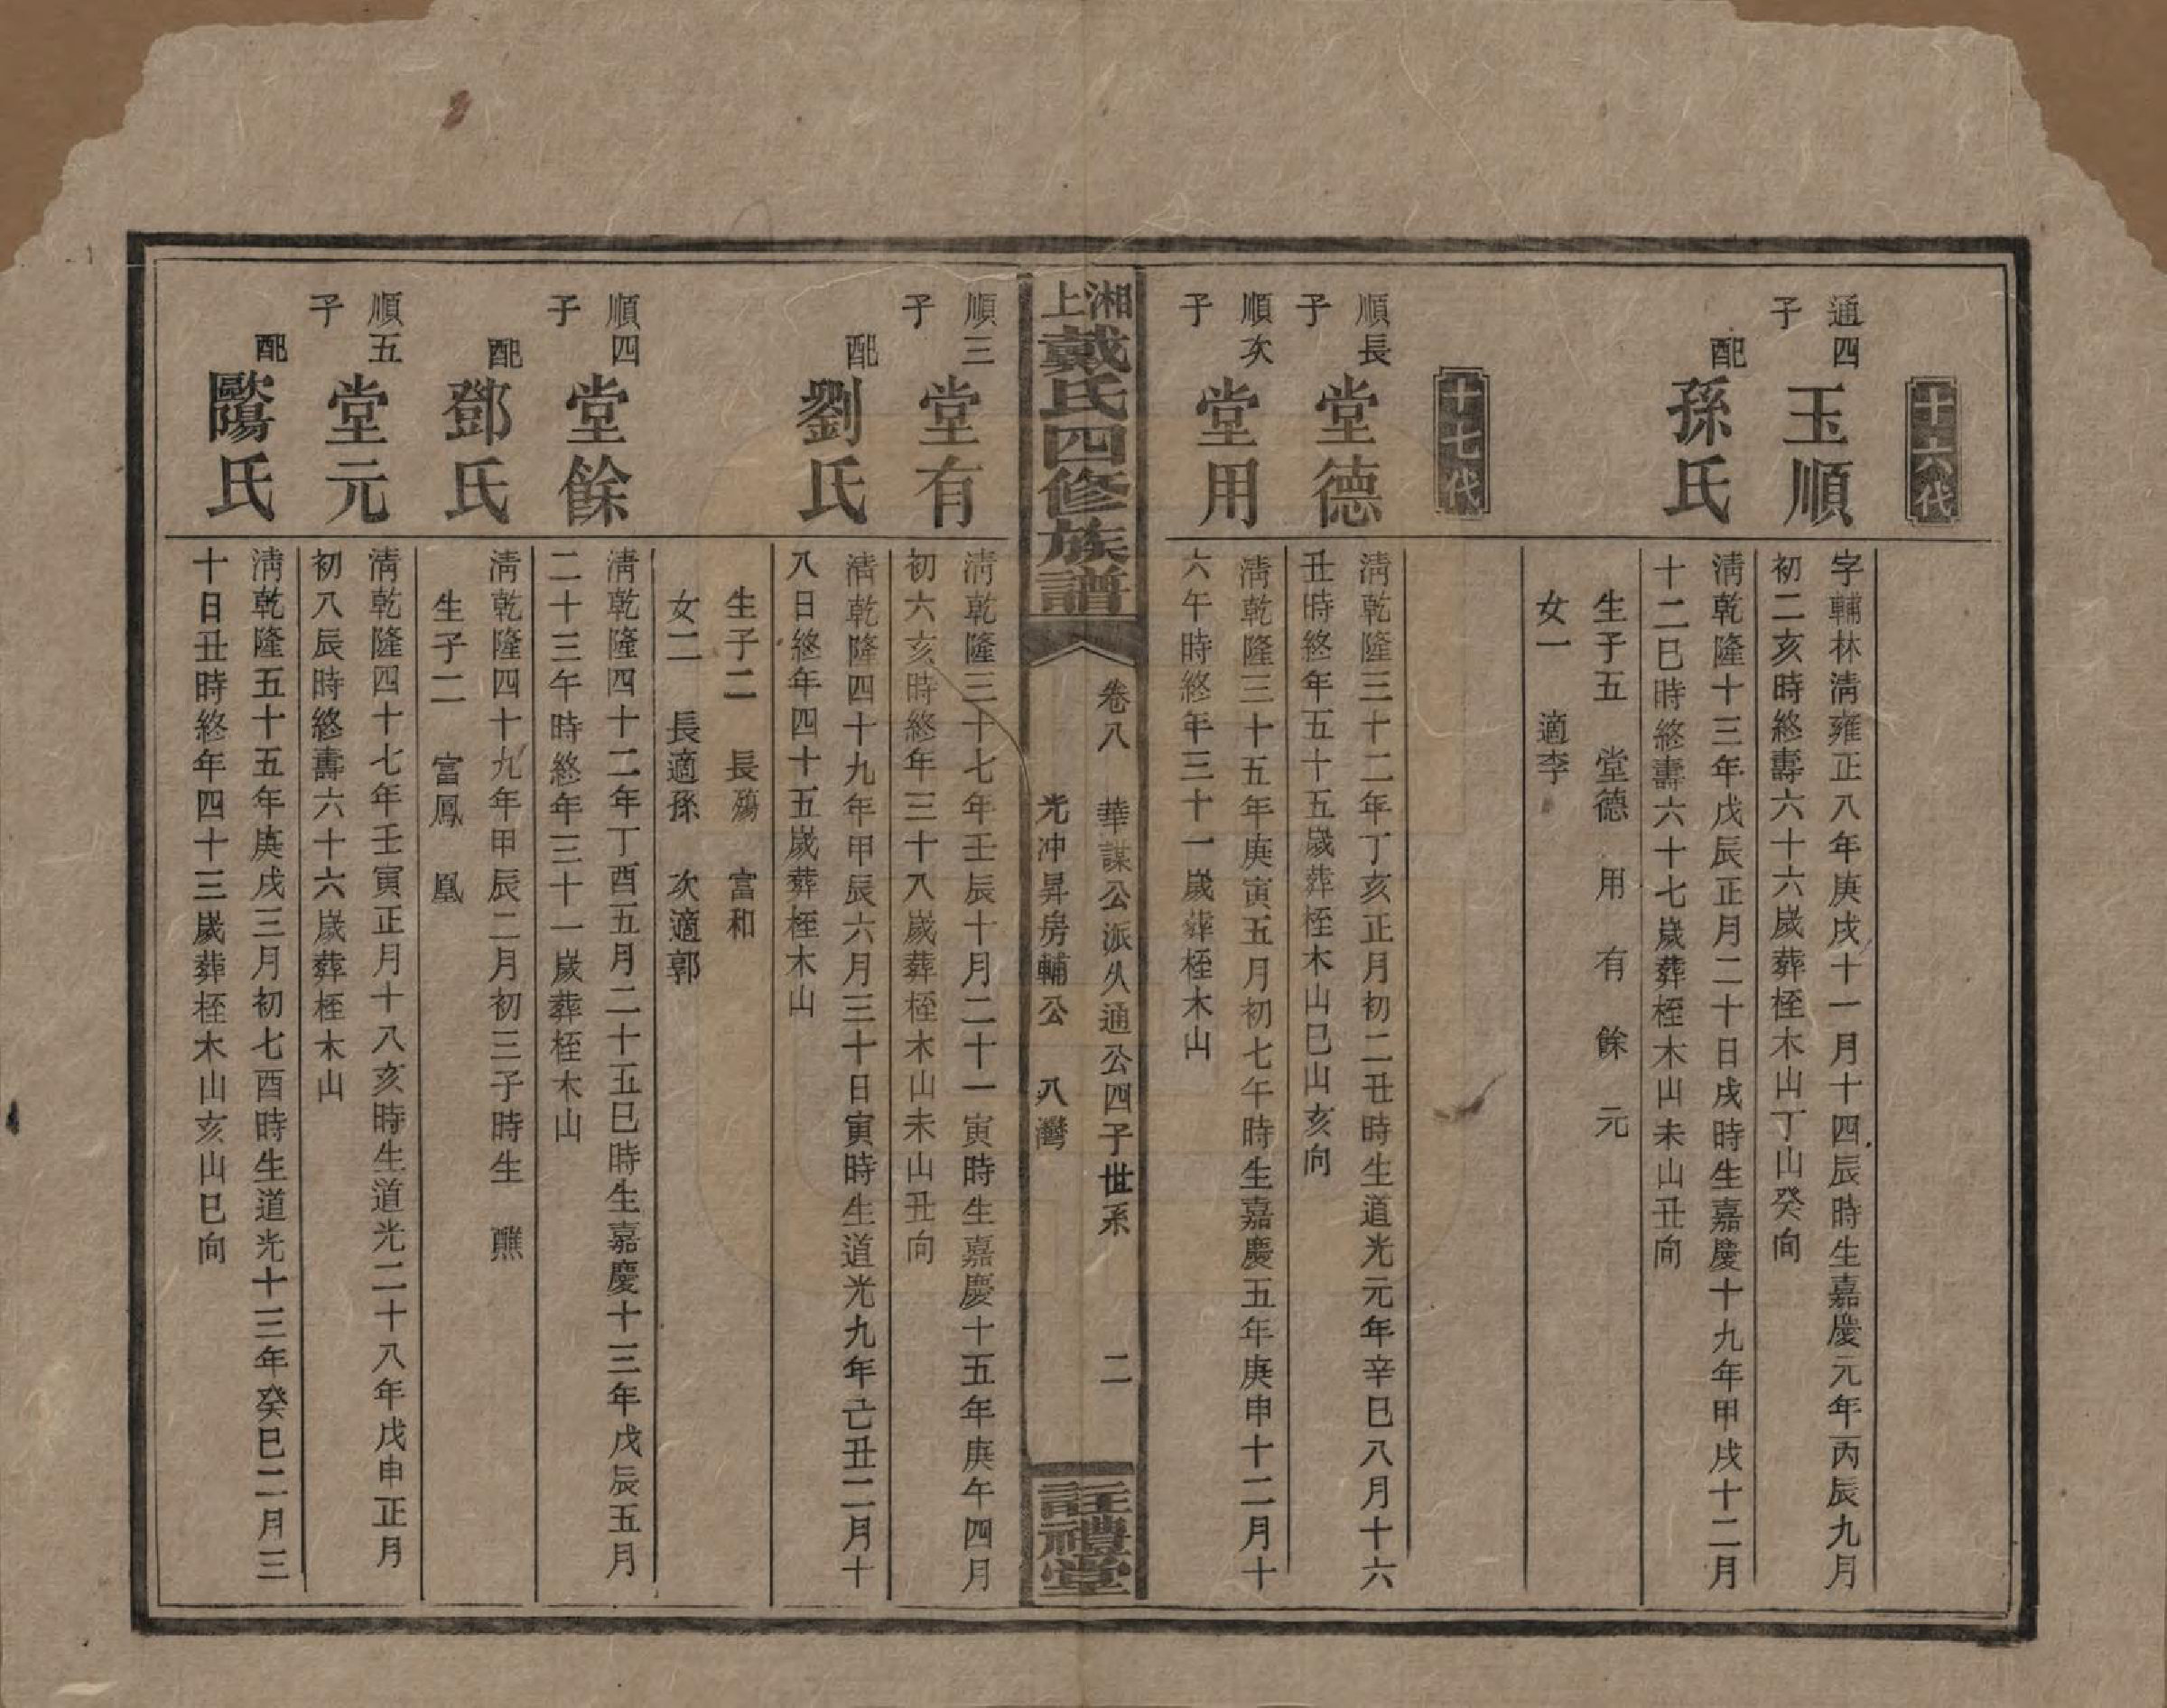 十六代
通四子 玉順
字輔林淸雍正八年庚戌十一月十四辰時生嘉慶元年丙辰九月
初二亥時終壽六十六歲葬桎木山丁山癸向
配 孫氏
淸乾隆十三年戊辰正月二十日戌時生嘉慶十九年甲戌十二月
十二巳時終壽六十七歲葬桎木山未山丑向
生子五 堂德 用 有 餘 元
女一 適李
十七代
順長子 堂德
淸乾隆三十二年丁亥正月初二丑時生道光元年辛巳八月十六
丑時終年五十五歲葬桎木山巳山亥向
順次子 堂用
淸乾隆三十五年庚寅五月初七午時生嘉慶五年庚申十二月十
六午時終年三十一歲葬桎木山
湘上戴氏四修族譜
卷八 華謀公派久通公四子世系 二
光冲昇房輔公 八灣
註禮堂
順三子 堂有
淸乾隆三十七年壬辰十月二十一寅時生嘉慶十五年庚午四月
初六亥時終年三十八歲葬桎木山未山丑向
配 劉氏
淸乾隆四十九年甲辰六月三十日寅時生道光九年己丑二月十
八日終年四十五歲葬桎木山
生子二 長殤 富和
女二 長適孫 次適郭
順四子 堂餘
淸乾隆四十二年丁酉五月二十五巳時生嘉慶十三年戊辰五月
二十三午時終年三十一歲葬桎木山
配 鄧氏
淸乾隆四十九年甲辰二月初三子時生 醮
生子二 富鳳 凰
順五子 堂元
淸乾隆四十七年壬寅正月十八亥時生道光二十八年戊申正月
初八辰時終壽六十六歲葬桎木山
配 歐陽氏
淸乾隆五十五年庚戌三月初七酉時生道光十三年癸巳二月三
十日丑時終年四十三歲葬桎木山亥山巳向